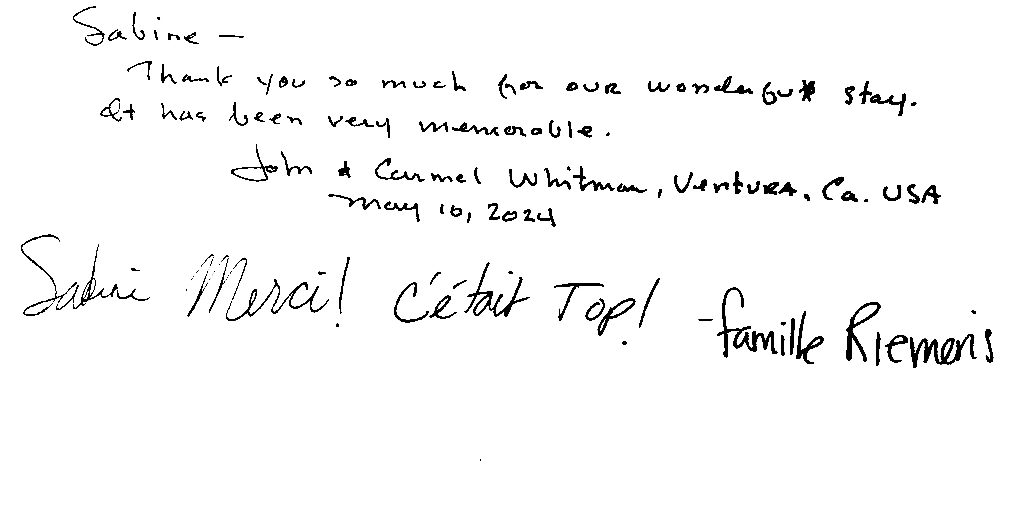 Sabine —
Thank you so much for our wonderful stay.
It has been very memorable.
John & Carmel Whitman, Ventura, Ca. USA
May 10, 2024
Sabine Merci! C'était Top! - famille Riemens